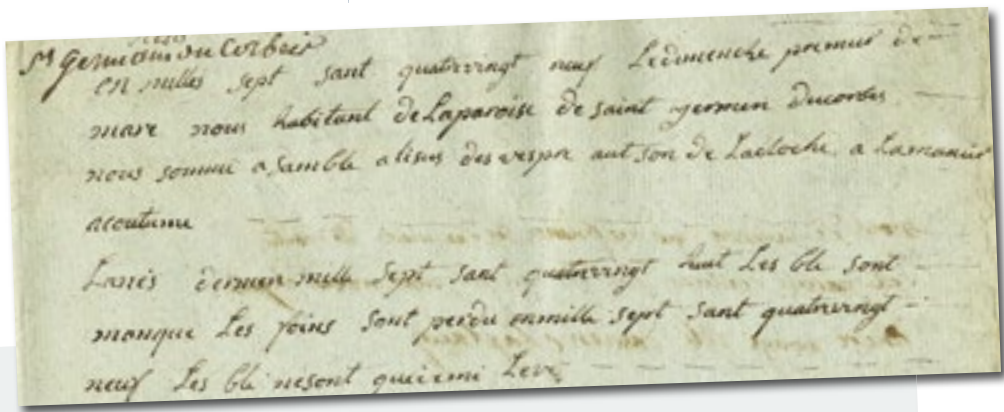 St Germain du Corbeis
en milles sept sant quatrevingt neuf Le dimenche premier de
mars nous habitant de Laparoise de saint germen ducorbeis
nous somme asamble alisus des vespre aut son de Lacloche a Lamanier
acoutume
Lanes dernier mille sept sant quatrevingt huit Les blé sont
manque Les foins sont perdu enmille sept sant quatrevingt
neuf Les blé nesont que demi Levé